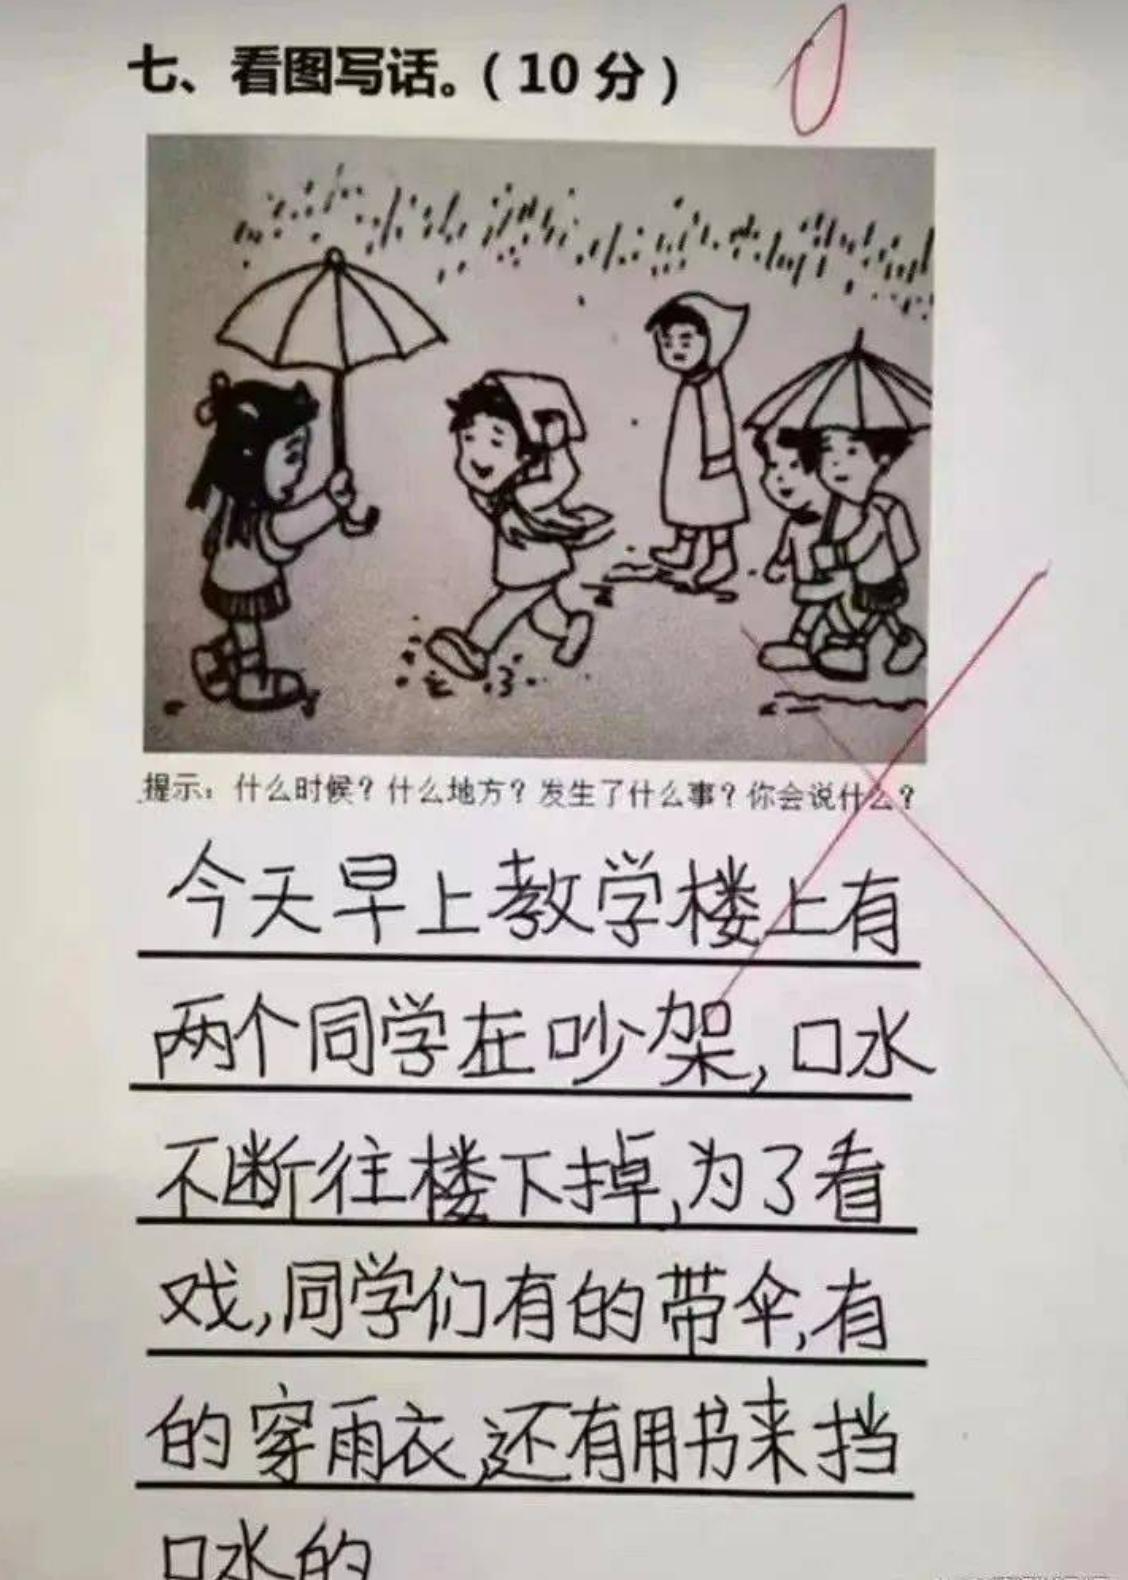 七、看图写话。（10分）
0
提示：什么时候？什么地方？发生了什么事？你会说什么？
今天早上教学楼上有
两个同学在吵架，口水
不断往楼下掉，为了看
戏，同学们有的带伞，有
的穿雨衣，还有用书来挡
口水的